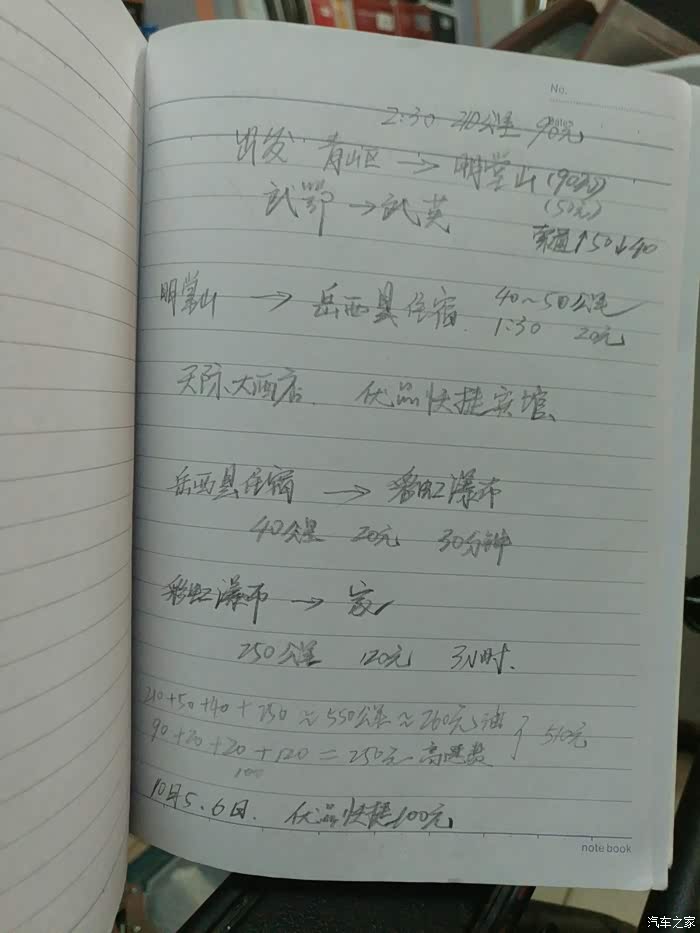 No.
2:30 210公里 90元
出发 青山区 → 明堂山(90元)
(50元)
武鄂 → 武英
索道↑50↓40
明堂山 → 岳西县住宿. 40~50公里
1:30 20元
天际大酒店. 优品快捷宾馆、
岳西县住宿 → 彩虹瀑布
40公里 20元 30分钟
彩虹瀑布 → 家
250公里 120元 3小时.
210+50+40+250≈550公里≈260元油
90+20+20+120=250元 高速费 } 510元
100
10月5.6日. 优品快捷100元
note book
汽车之家